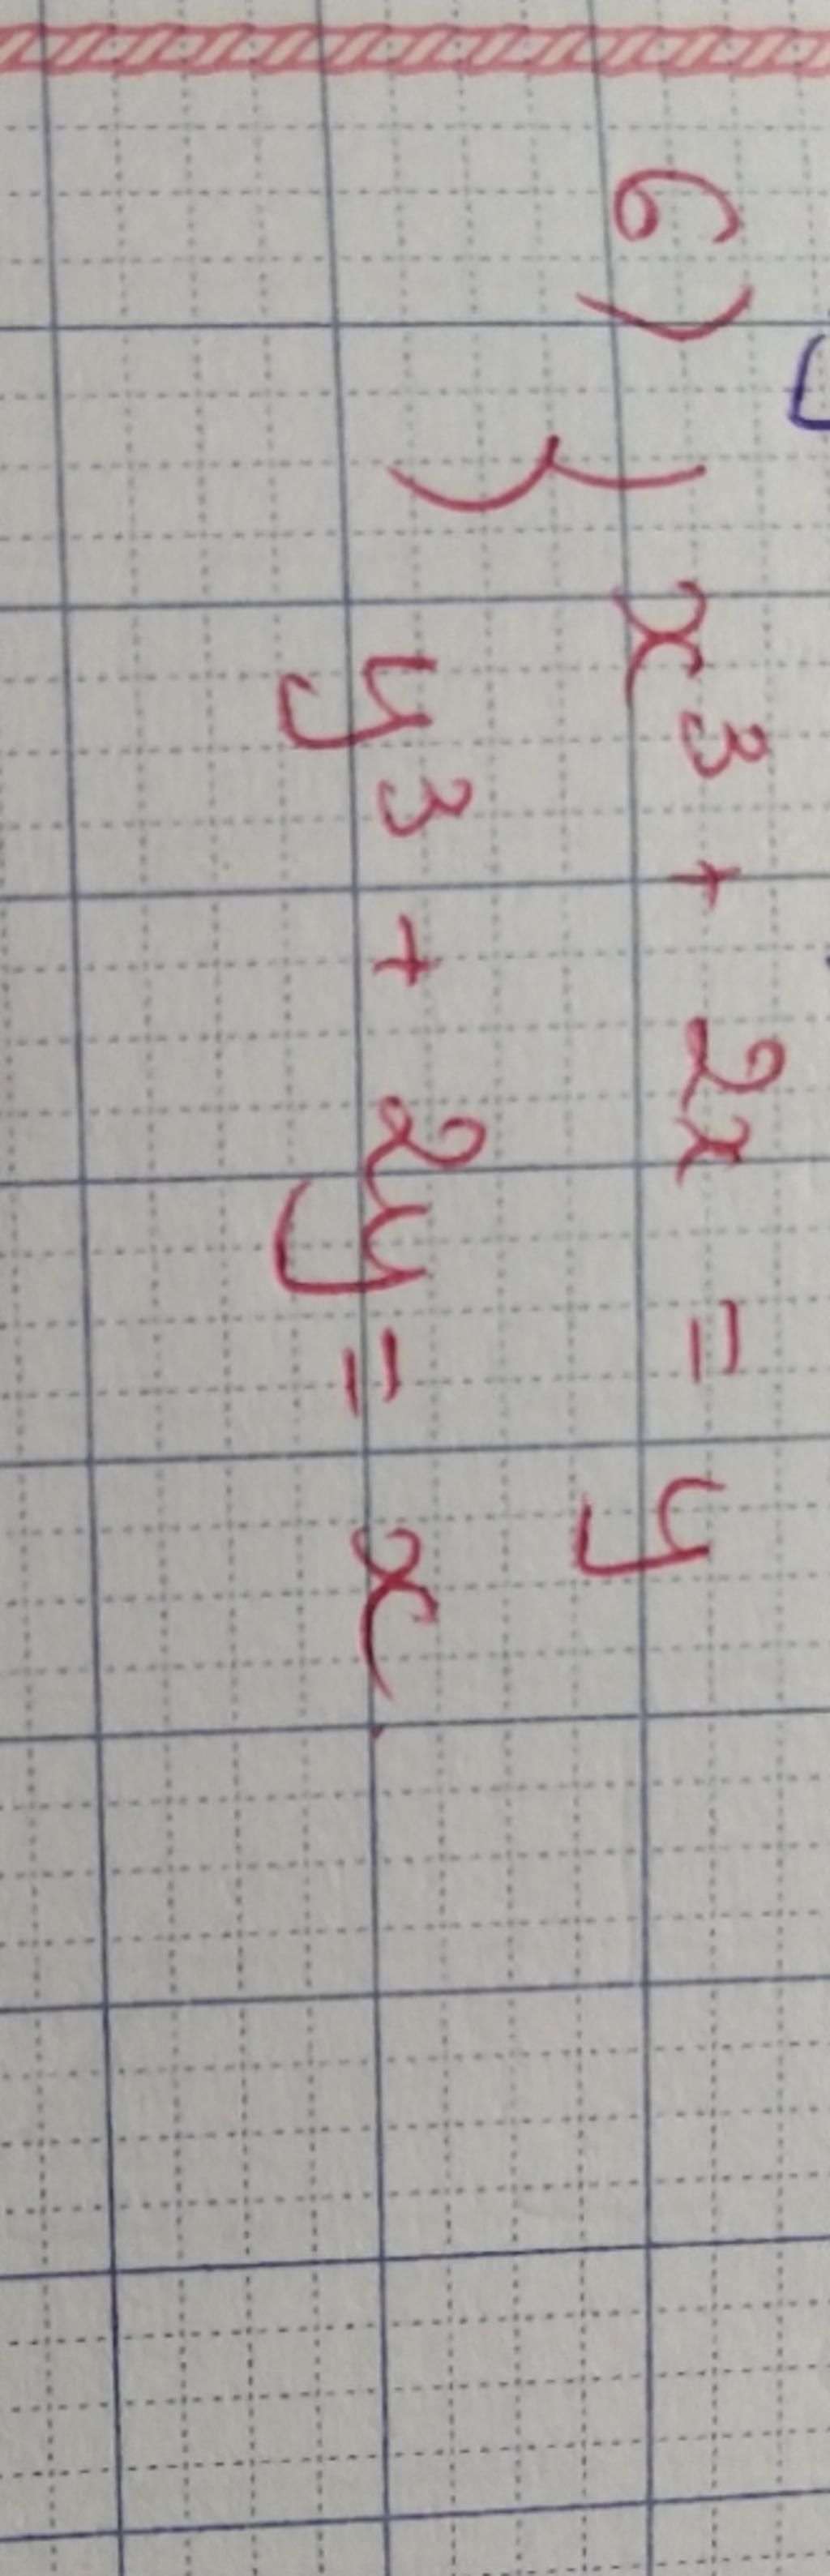 6) { x³ + 2x = y
y³ + 2y = x